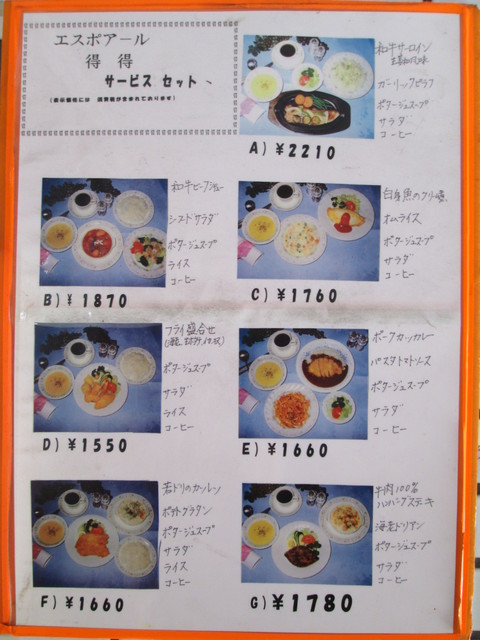 エスポアール
得 得
サービス セット
(表示価格には 消費税が含まれております)
和牛サーロイン
ガーリックピラフ
ポタージュスープ
サラダ
コーヒー
A) ¥2210
和牛ビーフシチュー
シーフードサラダ
ポタージュスープ
ライス
コーヒー
B) ¥ 1870
白身魚のクリーム煮
オムライス
ポタージュスープ
サラダ
コーヒー
C) ¥1760
フライ盛合せ
ポタージュスープ
サラダ
ライス
コーヒー
D) ¥1550
ポークカツカレー
パスタトマトソース
ポタージュスープ
サラダ
コーヒー
E) ¥1660
若ドリのカツレツ
ポテトグラタン
ポタージュスープ
サラダ
ライス
コーヒー
F) ¥1660
牛肉100%
ハンバーグステーキ
海老ドリアン
ポタージュスープ
サラダ
コーヒー
G) ¥1780